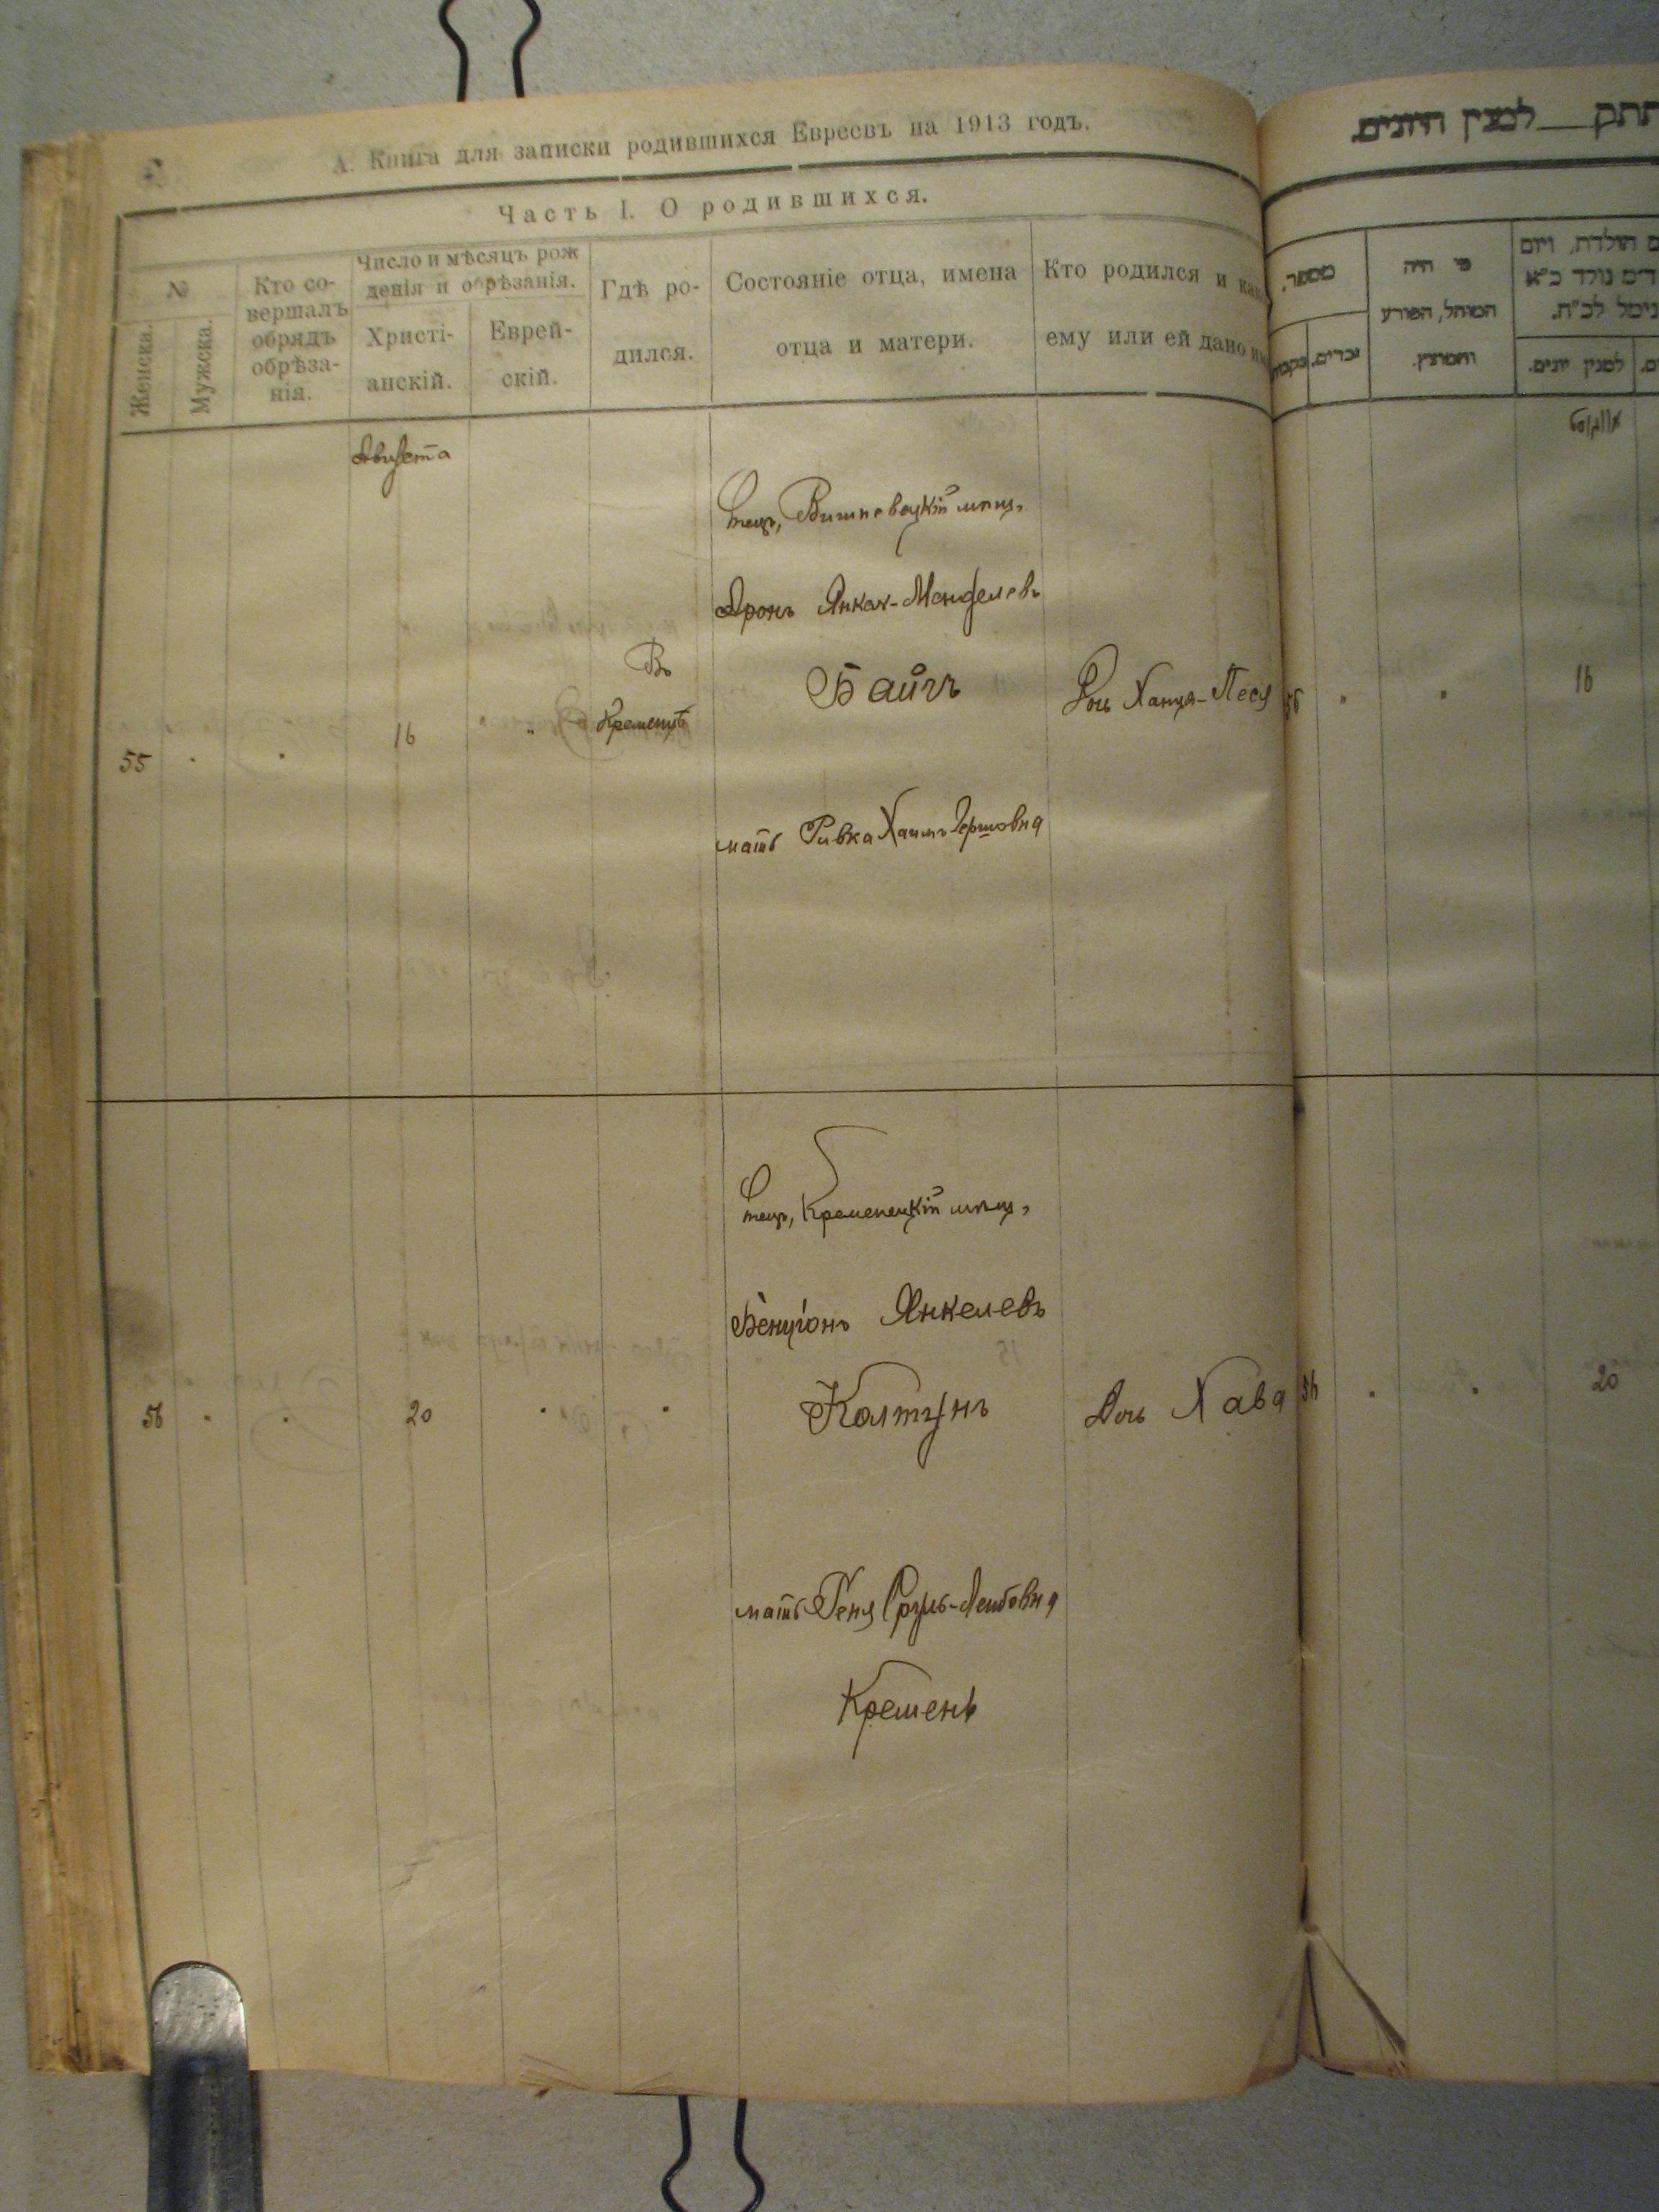 А. Книга для записки родившихся Евреевъ на 1913 годъ.
Часть I. О родившихся.
№
Женска.
Мужска.
Кто со-
вершалъ
обрядъ
обрѣза-
нія.
Число и мѣсяцъ рож
денія и обрѣзанія.
Христі-
анскій.
Еврей-
скій.
Гдѣ ро-
дился.
Состояніе отца, имена
отца и матери.
Кто родился и как
ему или ей дано им
Августа
55
16
Въ
Кременцѣ
Отецъ, Вишневецкій мѣщ.
Аронъ Янкель-Менделевъ
Байчъ
мать Ривка Хаимъ-Гершовна
Дочь Ханця-Песя
56
20
Отецъ, Кременецкій мѣщ.
Бенціонъ Янкелевъ
Колтунъ
мать Геня Сруль-Лейбовна
Кремень
Дочь Хава
למנין היונים.
מספר.
נקבות
זכרים.
מי היה
המוהל, הפורע
והמוצץ.
תולדת, ויום
נולד כ״א
נימל לב״ח.
למנין יונים.
אוגוסט
16
56
20